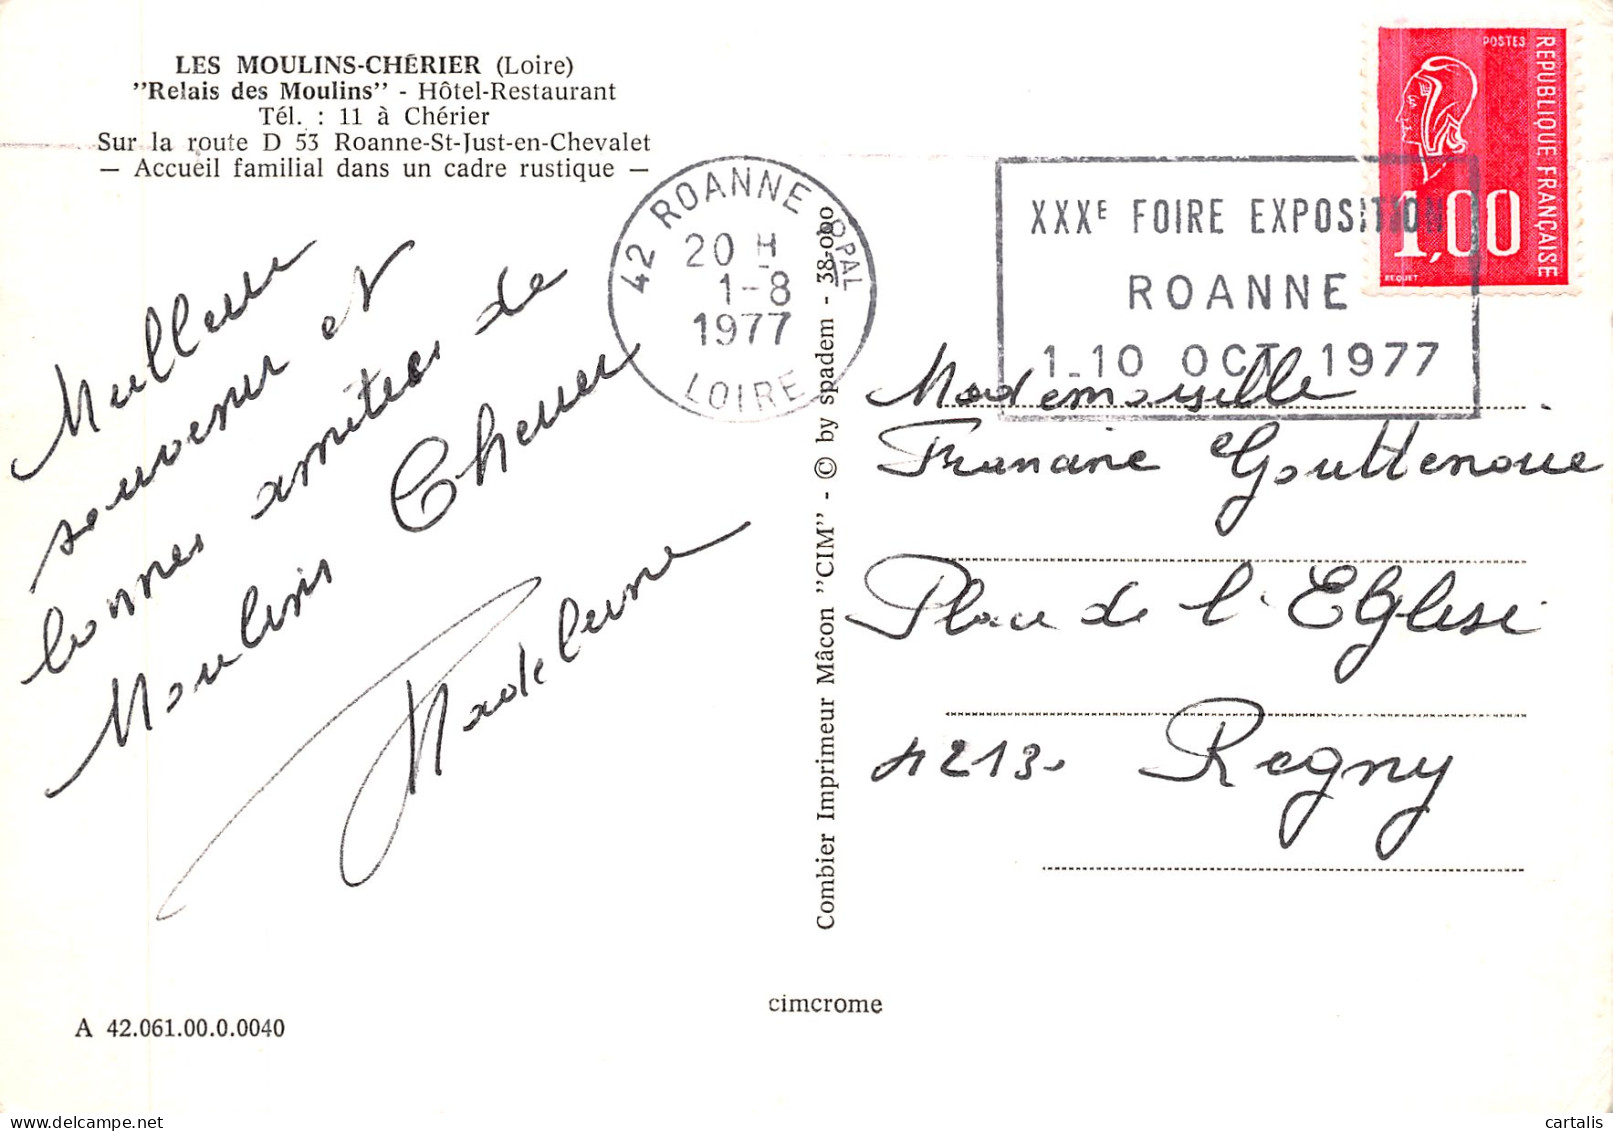 LES MOULINS-CHÉRIER (Loire)
"Relais des Moulins" - Hôtel-Restaurant
Tél. : 11 à Chérier
Sur la route D 53 Roanne-St-Just-en-Chevalet
— Accueil familial dans un cadre rustique —
Meilleur
souvenir et
bonnes amitiés de
Moulins Cherier
Madeleine
A 42.061.00.0.0040
Combier Imprimeur Mâcon "CIM" - © by spadem - 38-000
cimcrome
42 ROANNE PPAL
20 H
1-8
1977
LOIRE
XXXE FOIRE EXPOSITION
ROANNE
1_10 OCT 1977
POSTES
REPUBLIQUE FRANÇAISE
1,00
BEQUET
Mademoiselle
Francine Gouttenoire
Place de l'Eglise
4213. Regny
cartalis